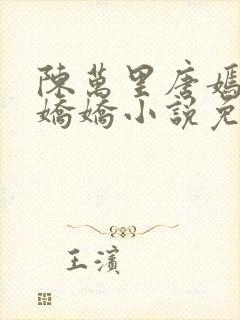 陳萬里唐嫣
嬌嬌小說免
王濱